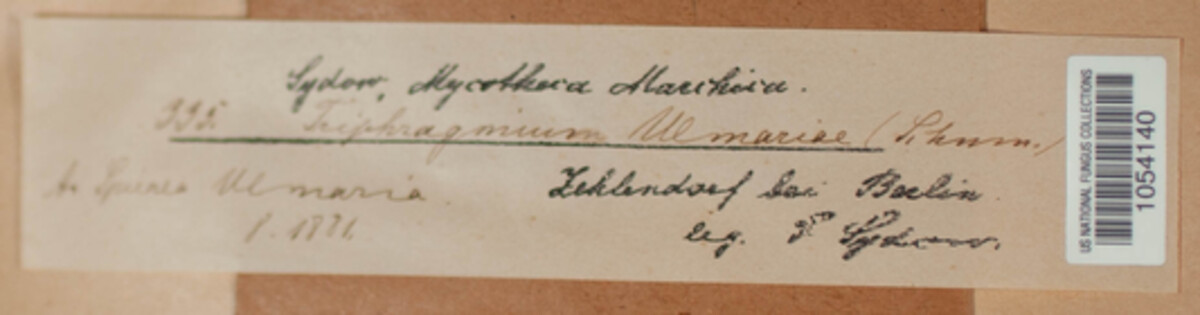 Sydow, Mycotheca Marchica.
335. Triphragmium Ulmariae (Schum.)
Spiraea Ulmaria.
Zehlendorf bei Berlin.
leg. P. Sydow.
US NATIONAL FUNGUS COLLECTIONS
1054140